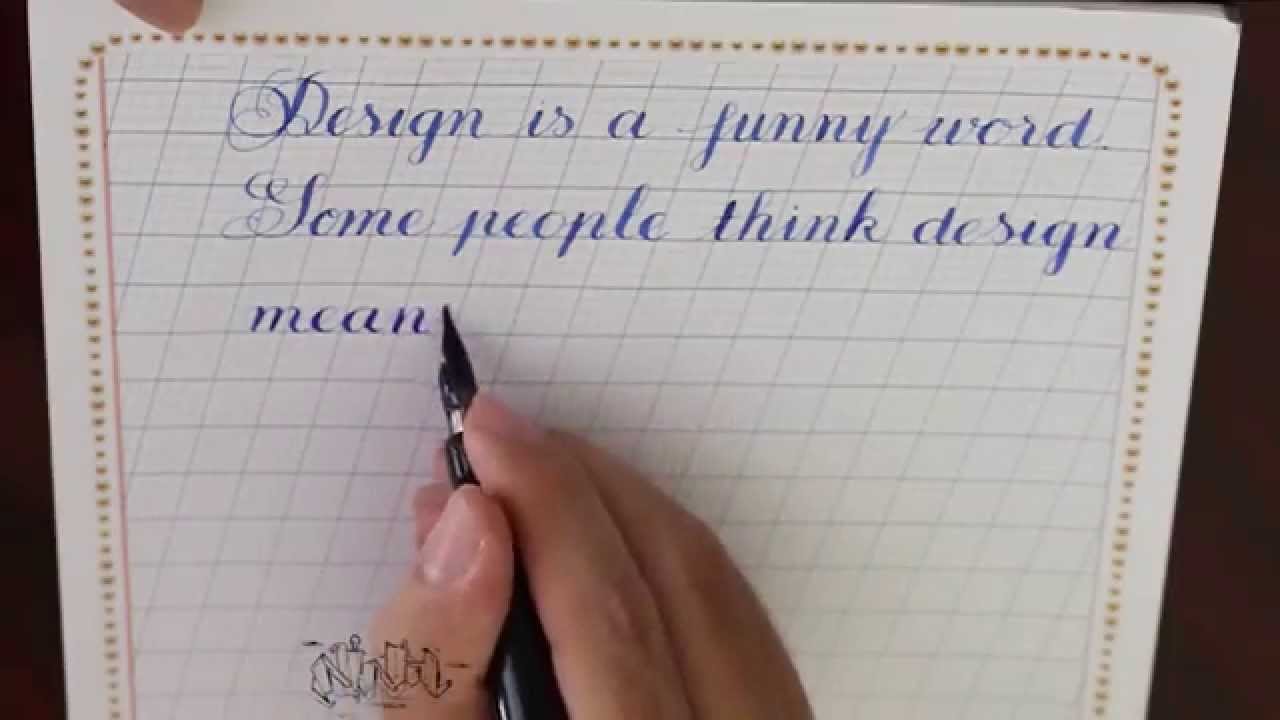 Design is a funny word.
Some people think design
mean